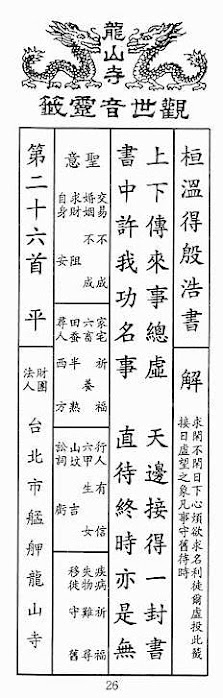 龍山寺
觀世音靈籤
桓溫得殷浩書
解
求閑不閑日下心煩欲求名利徒爾虛投此籤
接日虛望之象凡事守舊待時
上下傳來事總虛 天邊接得一封書
書中許我功名事 直待終時亦是無
聖意
交易 不成
婚姻 不成
求財 阻
自身 安
家宅 祈福
六畜 養
田蠶 半熟
尋人 西方
行人 有信
六甲 生女
山墳 吉
訟詞
疾病 祈福
失物 難尋
移徙 守舊
第二十六首 平
財團
法人
台北市艋舺龍山寺
26